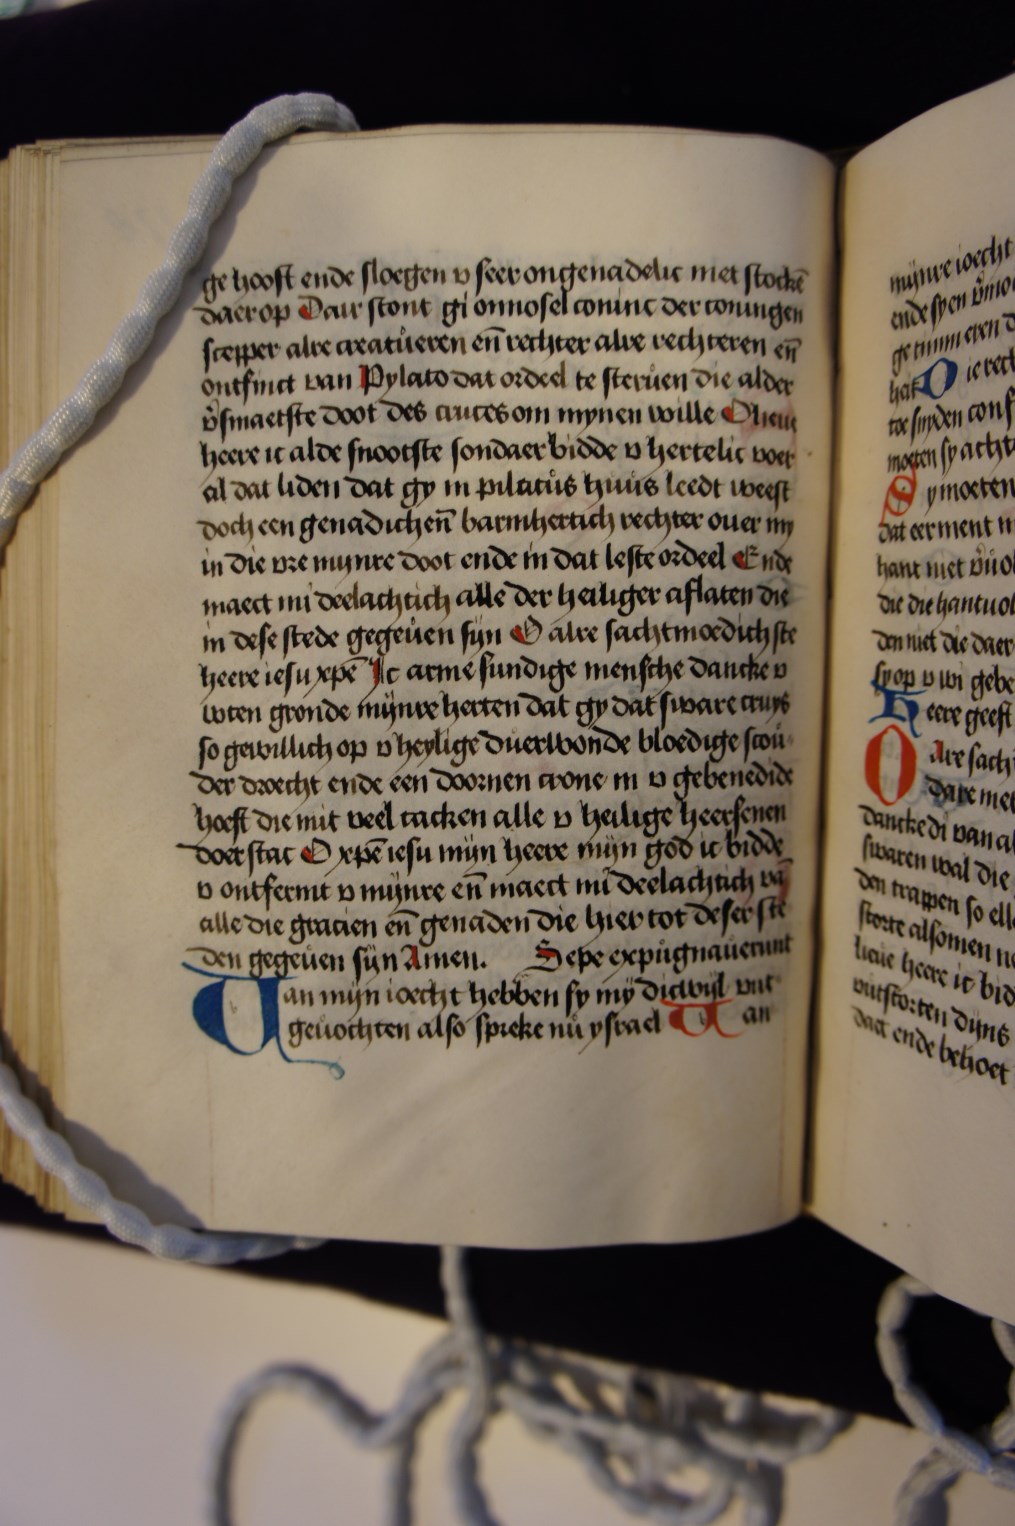 ge hooft ende sloegen v seer ongenadelic met stockē
daer op Dair stont gi onnosel coninc der coningen
scepper alre creatueren eñ rechter alre rechteren eñ
ontfinct van Pylato dat ordeel te steruen die alder
v̄smaetste doot des cruces om mynen wille O lieue
heere ic alde snootste sondaer bidde v hertelic voer
al dat liden dat gy in pilatus huus leedt weest
doch een genadich eñ barmhertich rechter ouer my
in die vre mynre doot ende in dat leste ordeel Ende
maect mi deelachtich alle der heiliger aflaten die
in dese stede gegeuen syn O alre sachtmoedichste
heere iesu xpē Ic arme sundige mensche dancke v
wten gronde mijnre herten dat gy dat sware cruys
so gewillich op v heylige duerwonde bloedige scou
der droecht ende een doornen crone in v gebenedide
hoeft die mit veel tacken alle v heilige heersenen
doerstac O xpē iesu mijn heere mijn god ic bidde
v ontfermt v mijnre eñ maect mi deelachtich vā
alle die gracien eñ genaden die hier tot deser ste
den gegeuen sijn Amen. Sepe expugnauerunt
Uan mijn ioecht hebben sy my dicwyl vut
geuochten also spreke nu ysrael Uan
mijnre ioecht
ende syen
getimmeren
hat Die
toe snyden
moeten sy
Sy moeten
dat eerment
hant niet
die die hant
den niet die daer
sy op v wi
Heere geeft
O Alre
dancke di van
swaren wal die
den trappen so
storte alsomen
lieue heere ic
vutstorten dyns
daer ende behoet